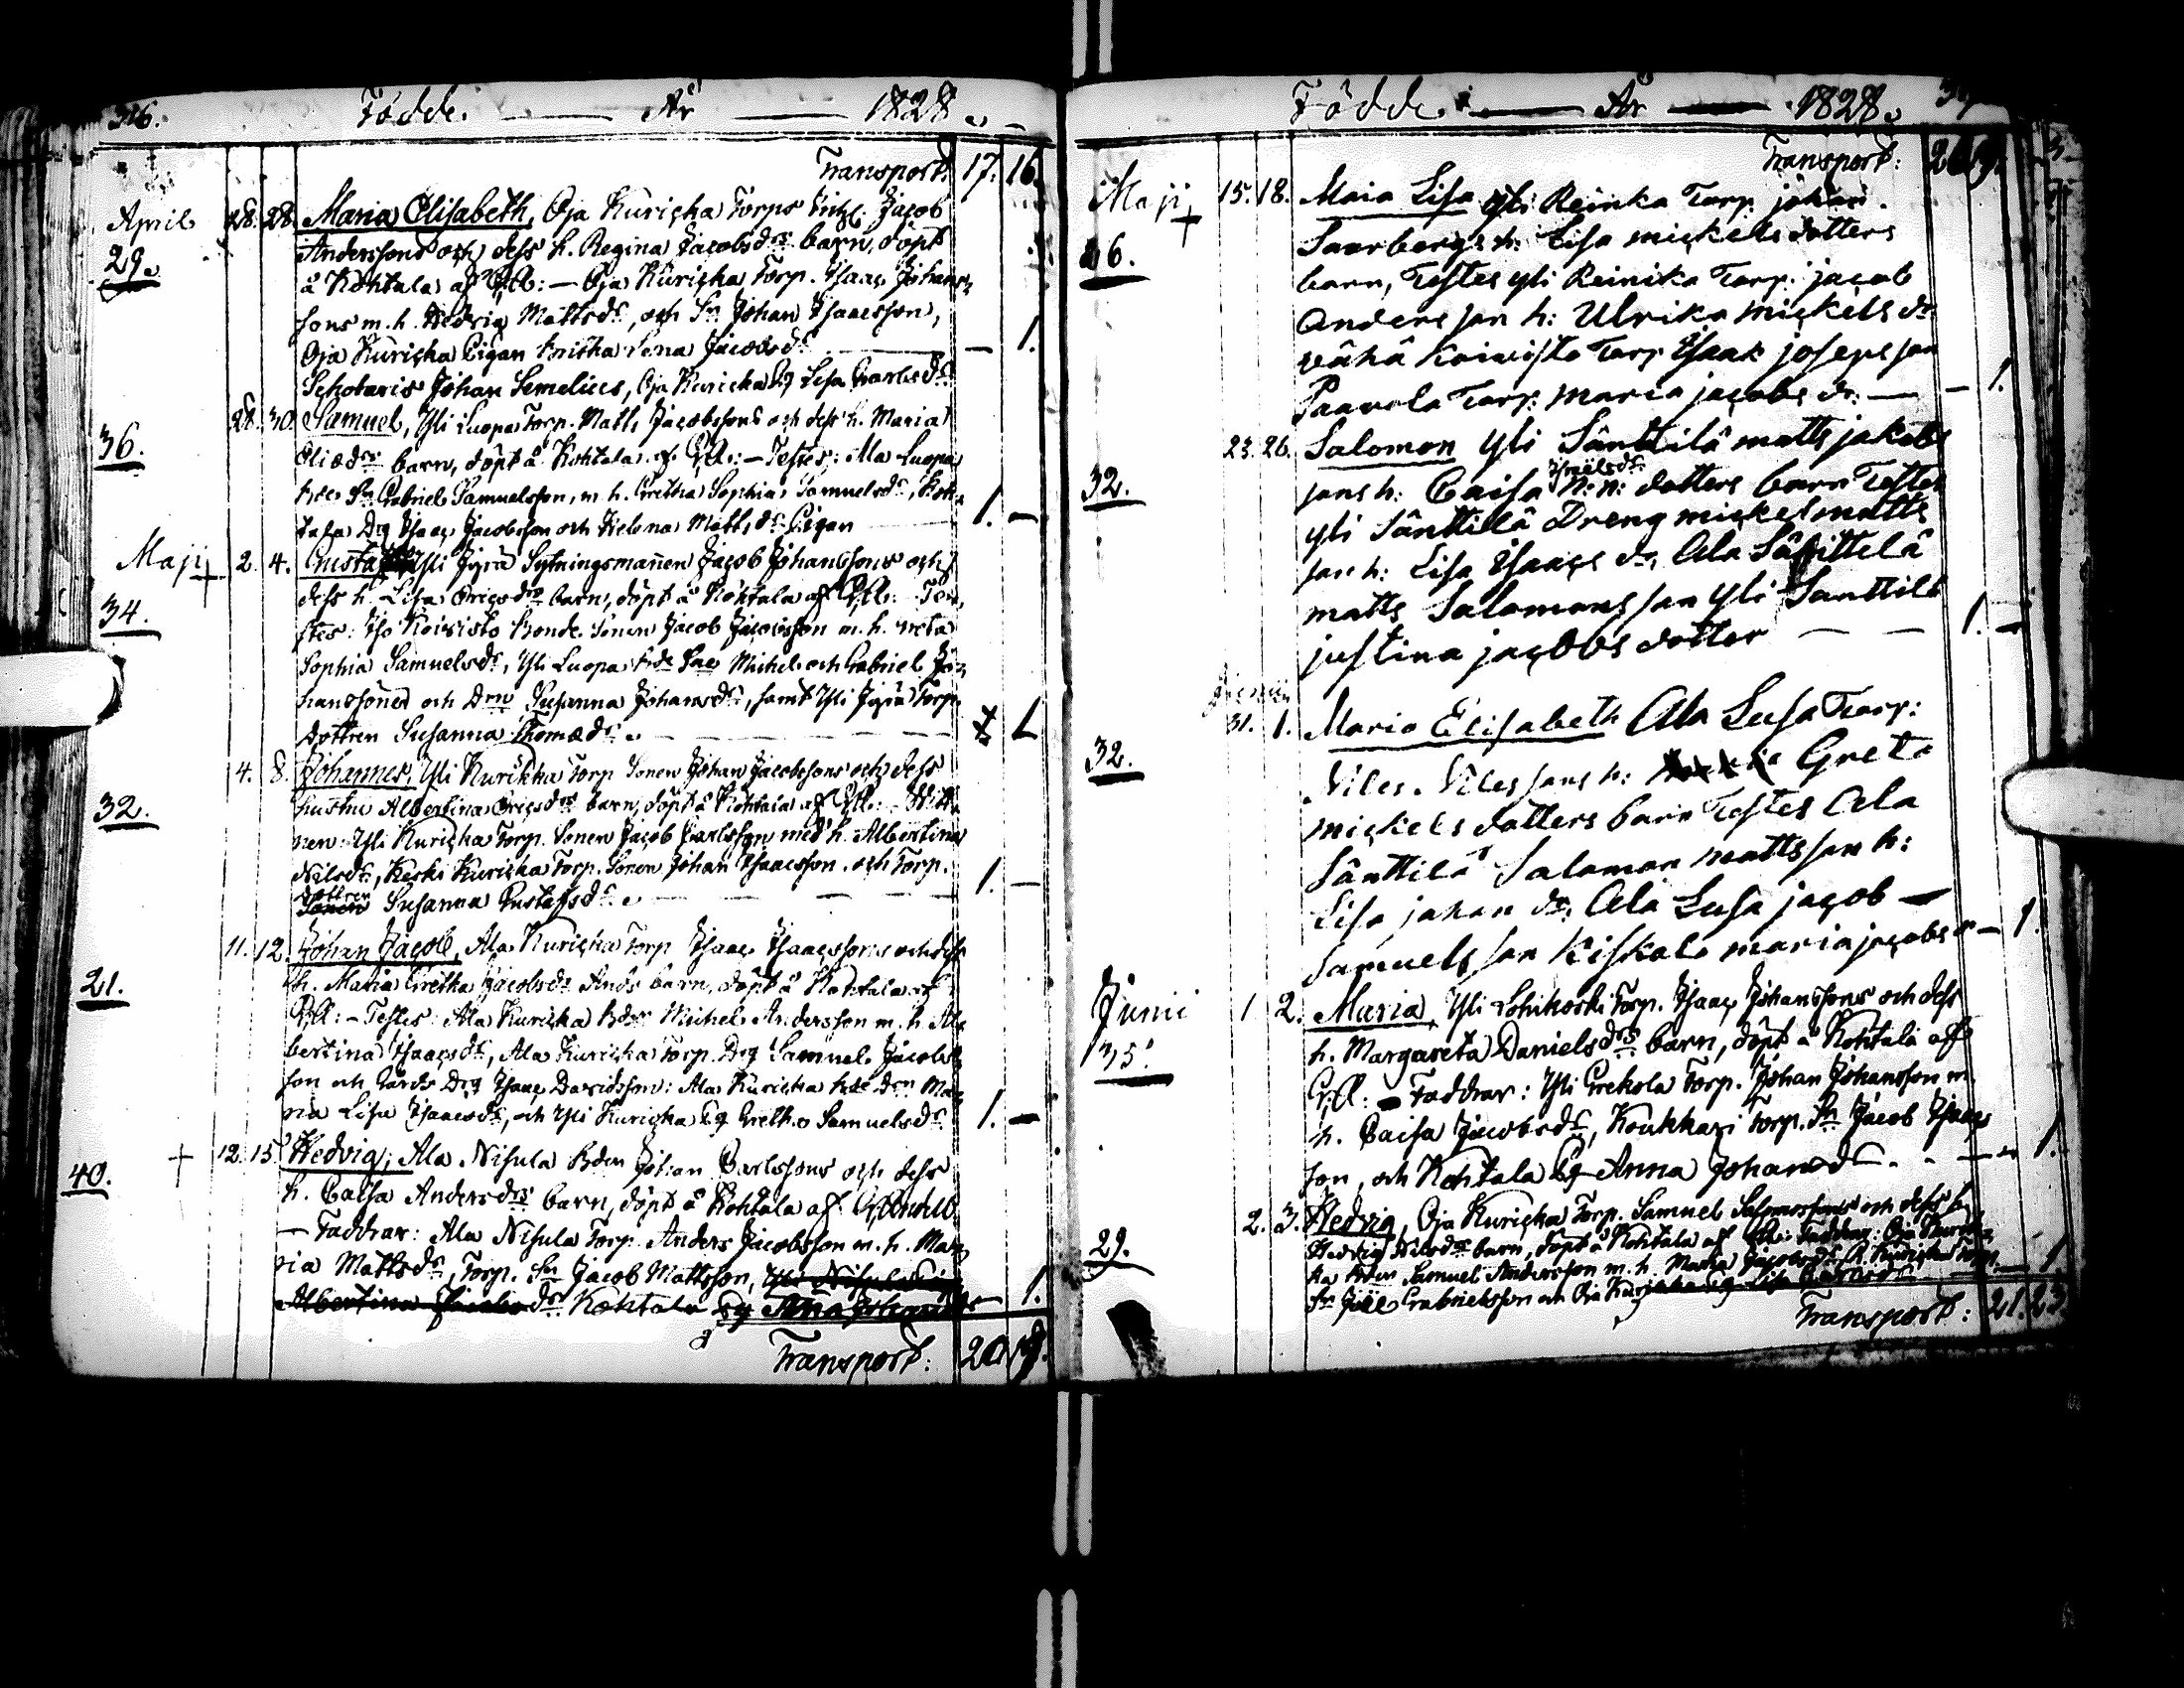 36. Födde. — År — 1828.
Transport. 17. 16.
April 28. 28. Maria Elisabeth, Oja Kuricka Torps Jacob
29. Anderssons och dess h. Regina Jacobsdrs barn, döpt
å Kohtala af — Oja Kuricka Torp. Isaac Johans
sons m. h. Hedvig Mattsdr, och Sn Johan Isaacsson,
Oja Kuricka Pigan Lena Jacobsdr — 1.
Scholaris Johan Semelius, Oja Kuricka Pig Lisa Carlsdr
28. 30. Samuel, Yli Luopa Torp. Matts Jacobssons och dess h. Maria
36. Eliædrs barn, döpt å Kohtala af — Testes: Ala Luopa
Sn Gabriel Samuelsson, m. h. Gretha Sophia Samuelsdr, Koh
tala Drg Isaac Jacobsson och Helena Mattsdr Pigan 1. —
Maji + 2. 4. Yli Jyrä Sytningsmannen Jacob Johanssons och
34. dess h. Lisa Ericsdrs barn, döpt å Kohtala af Te
stes: Iso Koivisto Bonde Sonen Jacob Jacobsson m. h. Greta
Sophia Samuelsdr, Yli Luopa Michel och Gabriel Jo
hanssöner och Drn Susanna Johansdr, samt Yli Jyrä Torp.
dottren Susanna Thomædr. — — — 1.
4. 8. Johannes, Yli Kurikka Torp Sonen Johan Jacobssons och dess
32. hustru Albertina Ericsdrs barn, döpt å Kohtala af Witt
nen: Yli Kuricka Torp. Sonen Jacob Carlsson med h. Albertina
Nilsdr, Keski Kuricka Torp. Sonen Johan Isaacsson. och Torp.
dottren
Sonen Susanna Gustafsdr. — — — 1. —
11. 12. Johan Jacob, Ala Kuricka Torp Isaac Isaacssons och dess
21. h. Maria Gretha Jacobsdr Ands barn, döpt å Kohtala af
— Testes: Ala Kuricka Bden Michel Andersson m. h. Al
bertina Isaacsdr, Ala Kuricka Torp. Drg Samuel Jacobs
son och Gårds Drg Isaac Davidsson: Ala Kuricka Drn Ma
ria Lisa Isaacsdr, och Yli Kuricka Pg Greth. Samuelsdr 1. —
+ 12. 15. Hedvig, Ala Nisula Bden Johan Carlssons och dess
40. h. Caisa Andersdrs barn, döpt å Kohtala af
— Faddrar: Ala Nisula Torp. Anders Jacobsson m. h. Ma
ria Mattsdr, Torp. Sn Jacob Mattsson, Yli Nisula Pig
Albertina Jacobsdr Kohtala Pg Anna Johansdr — 1.
Transport: 20. 19.
Födde. — År — 1828.
Transport:
Maji + 15. 18. Maia Lisa Yli Reinka Torp. johan
26. Saarbergs h: Lisa mickels dotters
barn, Testes yli Reinika Torp: jacob
Anders son h: Ulrika mickels dr
vähä Koivisto Torp Isaak josepsson
Paavola Torp: maria jacobs dr: — — 1.
23. 26. Salomon Yli Sänttilä matts jakobs
Israelsdr
32. sons h: Caisa N: n: dotters barn Testes
yli Sänttilä Dreng mickel matts
son h: Lisa Isaacs dr, Ala Sänttelä
matts Salomons son Yli Santtilä
justina jacobs dotter — — 1. —
31. 1. Maria Elisabeth Ala Lusa Torp:
32. Niles Niles sons h: Greta
mickels dotters barn Testes Ala
Sänttilä Salamon mattsson h:
Lisa johan dr, Ala Lusa jacob —
Samuels son Kiskala maria jacobs dr — 1.
Junii 1 2. Maria, Yli Lohikoski Torp. Isaac Johanssons och dess
35. h. Margareta Danielsdrs barn, döpt å Kohtala af
— Faddrar: Yli Grekola Torp. Johan Johansson m.
h. Caisa Jacobsdr, Koukkari Torp. Sn Jacob Isaacs
son, och Kohtala Pg Anna Johansdr. — 1.
2. 3. Hedvig, Oja Kuricka Torp. Samuel Salomonssons och dess h.
29. Hedvig Nilsdrs barn, döpt å Kohtala af Faddrar: Oja Kuric
ka Bden Samuel Andersson m. h. Maria Jacobsdr, Kuricka Torp.
Sn Gabrielsson och Oja Kuricka Pg Lisa Carlsdr — 1
Transport: 21. 23